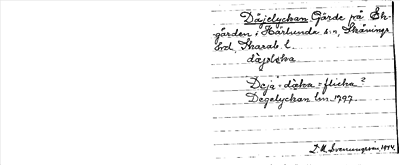 Däjelyckan Gärde på Ek-
gården i Härlunda s:n, Skånings
hd, Skarab. l.
däjəlyka
Deja = däka = flicka?
Degelyckan lm 1797.
D. A. Svenungsson, 1914.